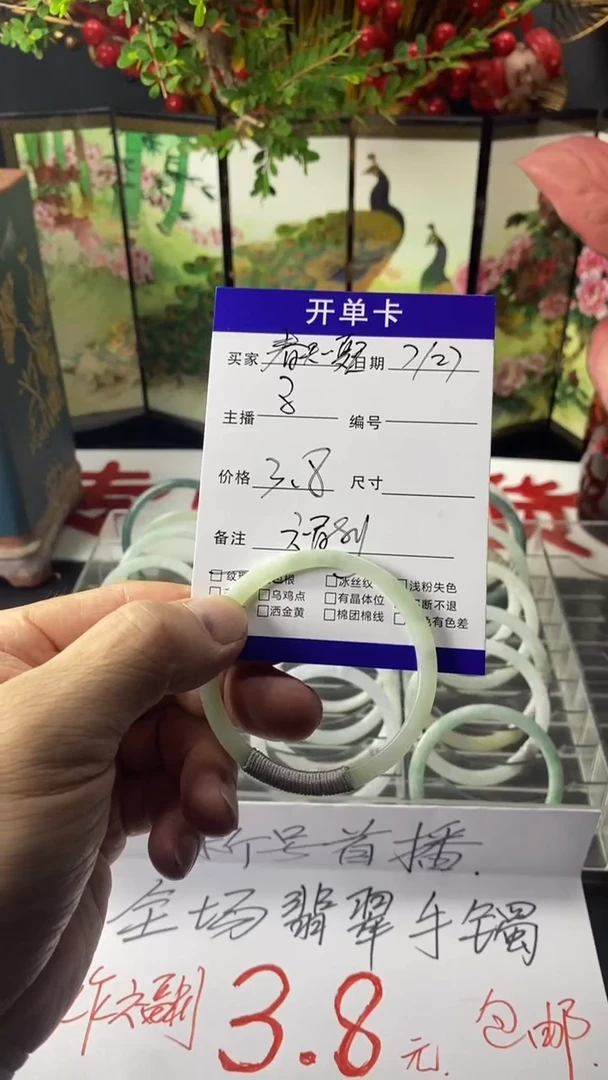 开单卡
买家 春天一夏 日期 7/27
主播 3 编号
价格 3.8 尺寸
备注
冰丝纹 浅粉失色
乌鸡点 有晶体位 断不退
洒金黄 棉团棉线 色有色差
新号首播
全场翡翠手镯
作福利 3.8元 包邮